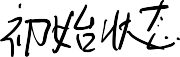 初始状态